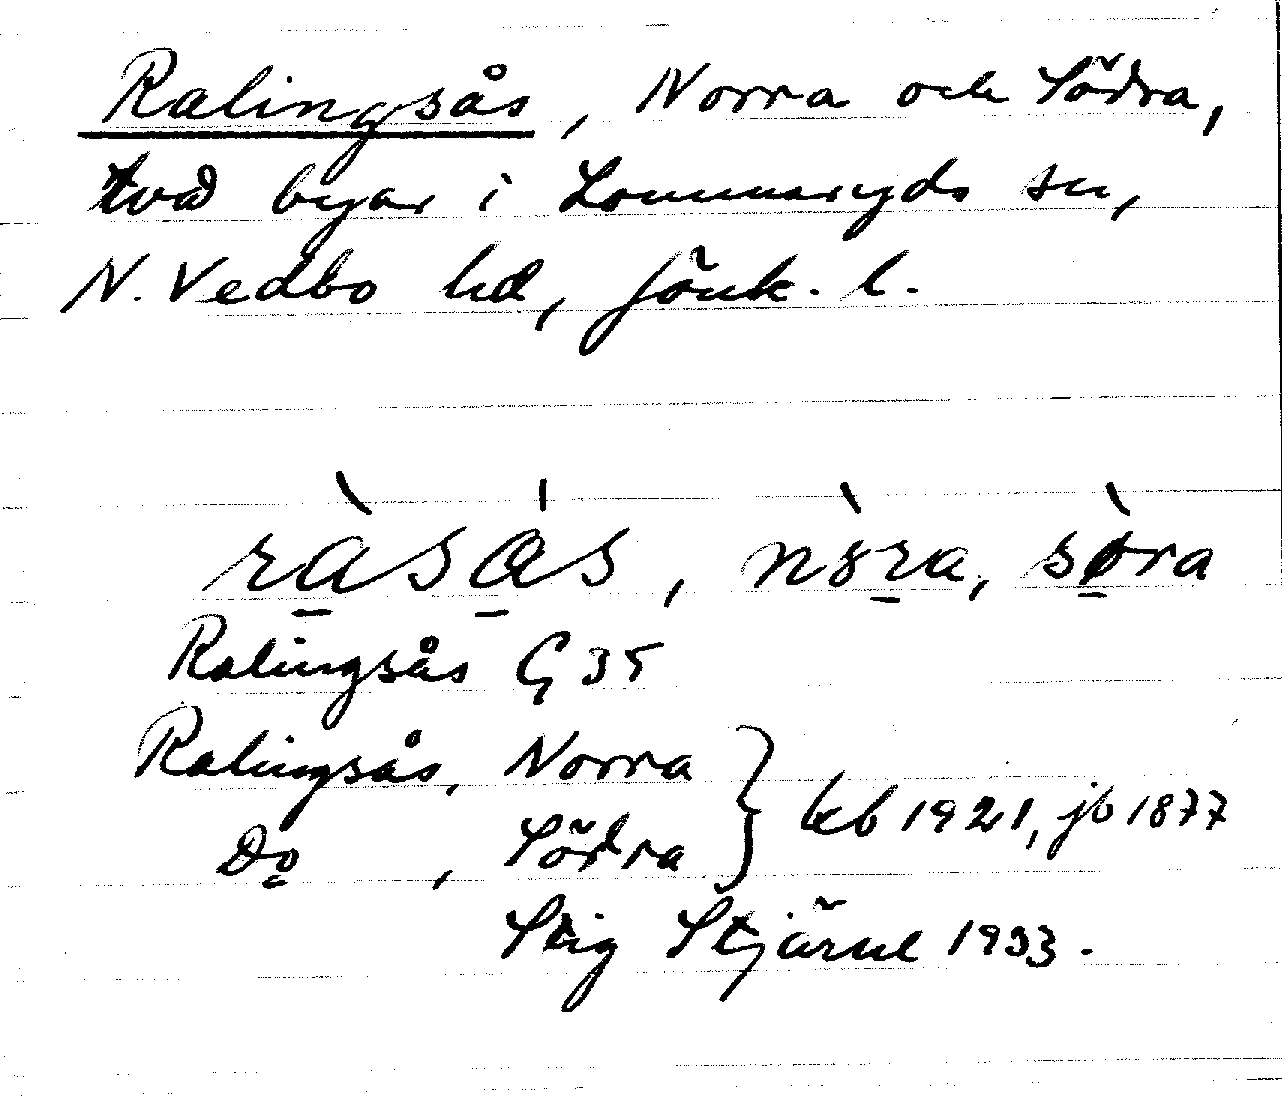 Ralingsås, Norra och Södra,
två byar i Lommaryds sn,
N. Vedbo hd, Jönk. l.
ràsás, nòra, sòra
Ralingsås G 35
Ralingsås, Norra
Do , Södra } kb 1921, jb 1877
Stig Stjärne 1933.